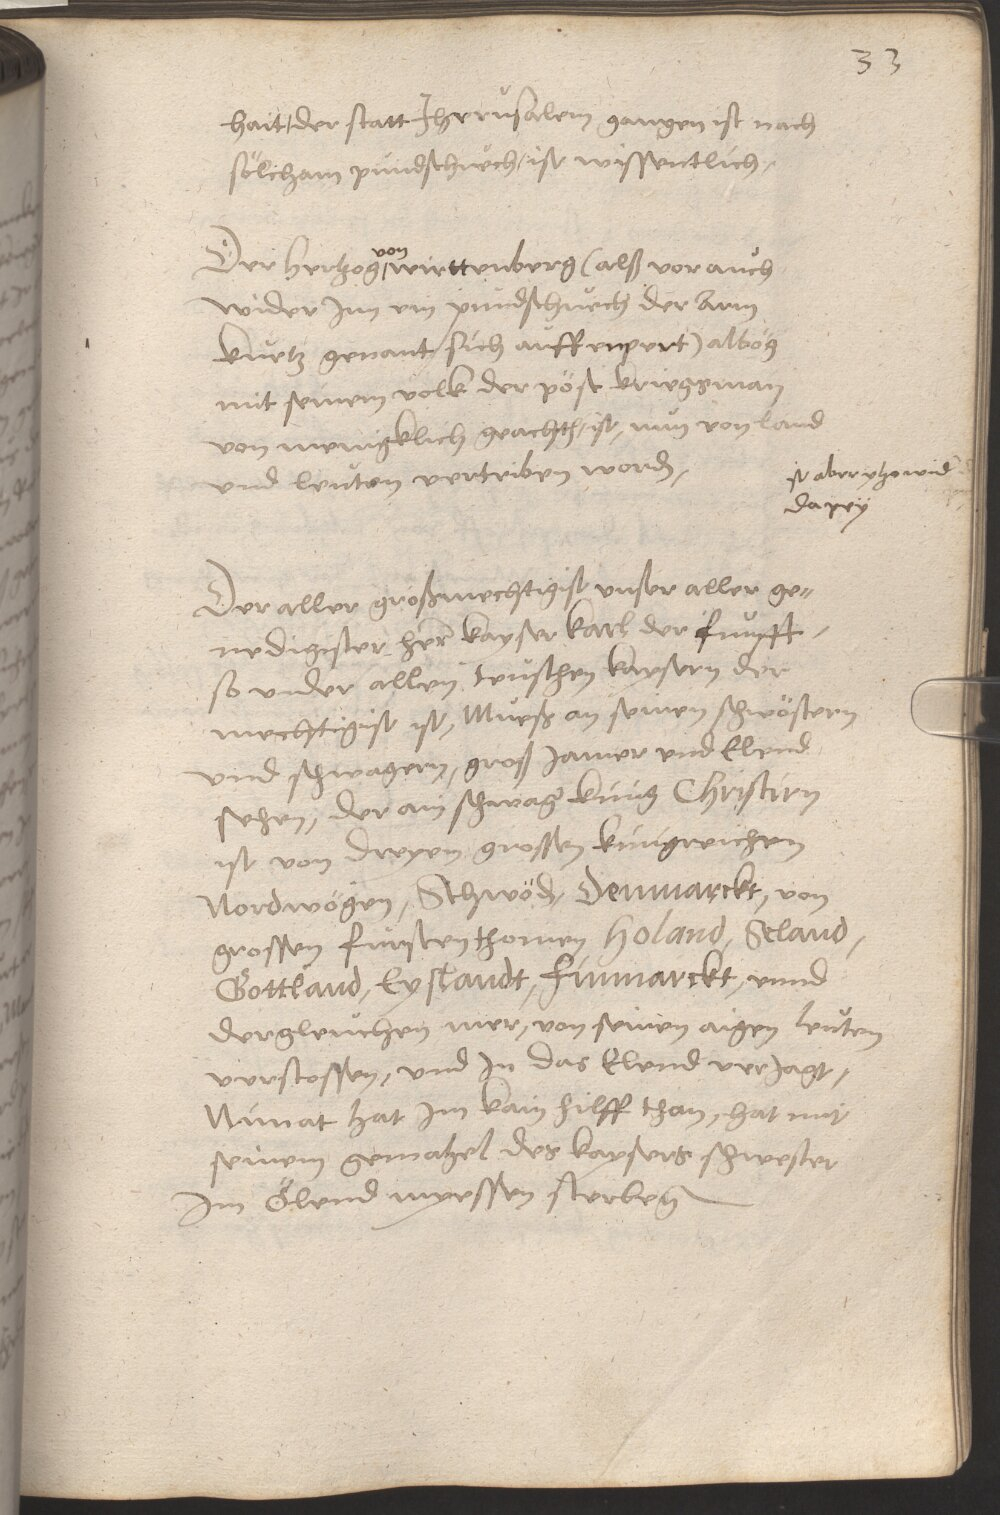 33
hait der statt Jherusalem gangen ist nach
sölcham pundschuech, ist wissentlich,
Der hertzog von wirttenberg (alß vor auch
wider Jm ein pundschuech der Arm
kuetz genant sich auffenpert) alwög
mit seinem volk der pöst kriegsman
von menigklich geacht, ist, nun von land
und leuten vertriben word,
ist aber yetzo wid
da pey
Der aller großmechtigist unser aller ge„
nedigister herr kayser karl der funfft,
so under allen teuschen kaysern der
mechtigist ist, Mueß an seinen schwöstern
und schwagern, groß Jamer und Elend
sehen, der ain schwag kunig Christiern
ist von dreyen grossen kunigreichen
Nordwögen, Schwöd, Denmarckt, von
grossen furstenthomen Holand, Seland,
Gottland, Eyslandt, Finmarckt, unnd
dergleichen mer, von seinen aigen leuten
verstossen, und In das Elend verJagt,
Nimat hat Jm kain hilff than, hat mit
seinem gemahel des kaysers schwester
Jm Ölend myessen sterben